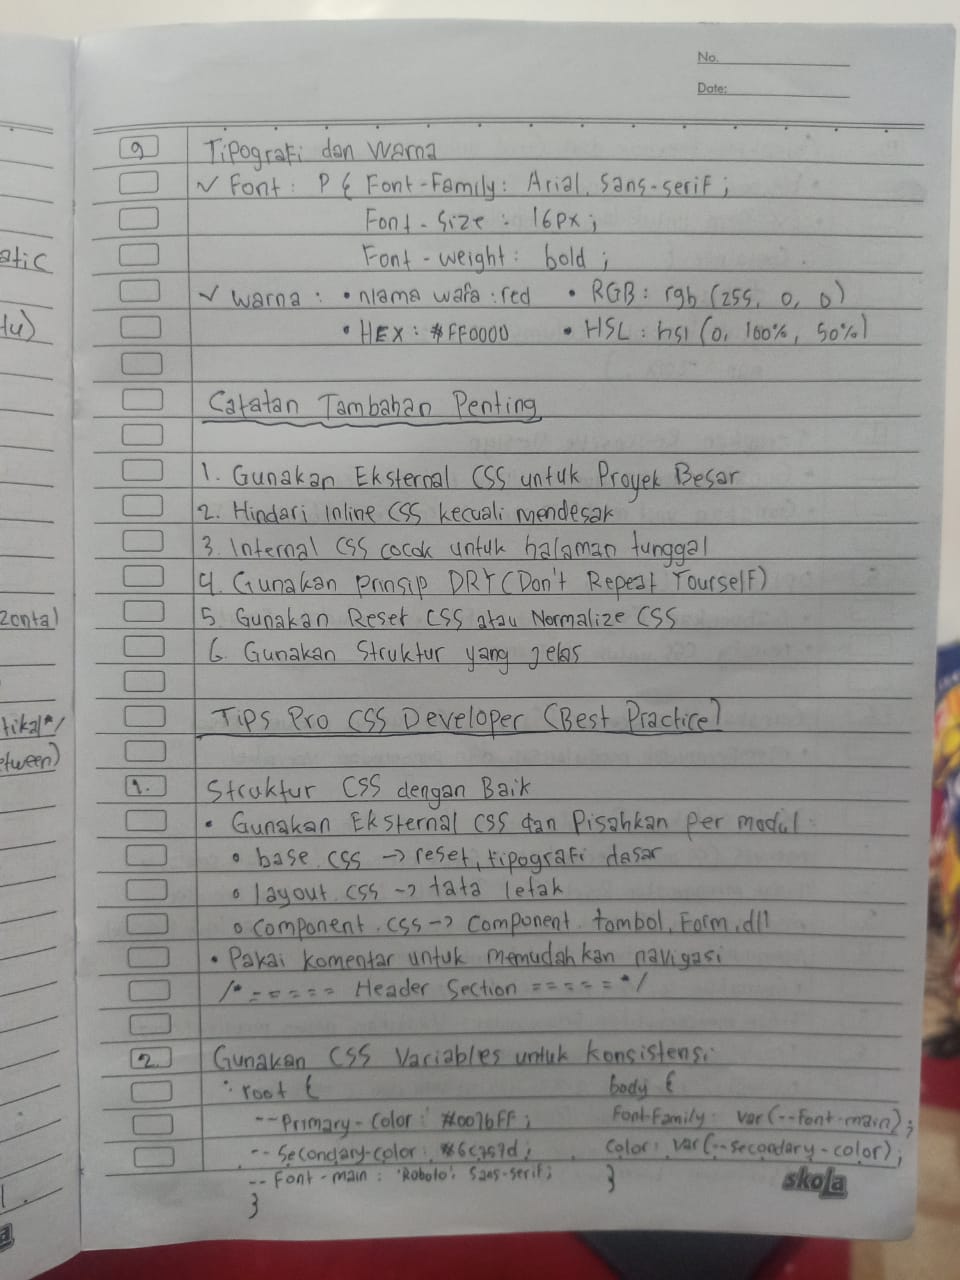 No.
Date:
9 Tipografi dan Warna
✓ Font : P { Font-Family: Arial, Sans-serif ;
Font-Size : 16px ;
Font-weight : bold ;
✓ Warna : • nlama wara : red • RGB : rgb (255, 0, 0)
• HEX : #FF0000 • HSL : hsl (0, 100%, 50%)
Catatan Tambahan Penting
1. Gunakan Eksternal CSS untuk Proyek Besar
2. Hindari Inline CSS kecuali mendesak
3. Internal CSS cocok untuk halaman tunggal
4. Gunakan prinsip DRY (Don't Repeat Yourself)
5. Gunakan Reset CSS atau Normalize CSS
6. Gunakan Struktur yang jelas
Tips Pro CSS Developer (Best Practice)
1. Struktur CSS dengan Baik
• Gunakan Eksternal CSS dan Pisahkan Per modul :
o base.css -> reset, tipografi dasar
o layout.css -> tata letak
o Component.css -> Component. tombol, Form, dll
• Pakai komentar untuk memudahkan navigasi
/* ===== Header Section ===== */
2. Gunakan CSS Variables untuk konsistensi
: root { body {
--Primary-Color : #007bFF ; Font-Family : var(--Font-main) ;
-- Secondary-color : #6c757d ; Color : var(--secondary-color) ;
-- Font-main : 'Roboto', Sans-serif ; }
}
skola
atic
tu)
zontal
tikal*/
etween)